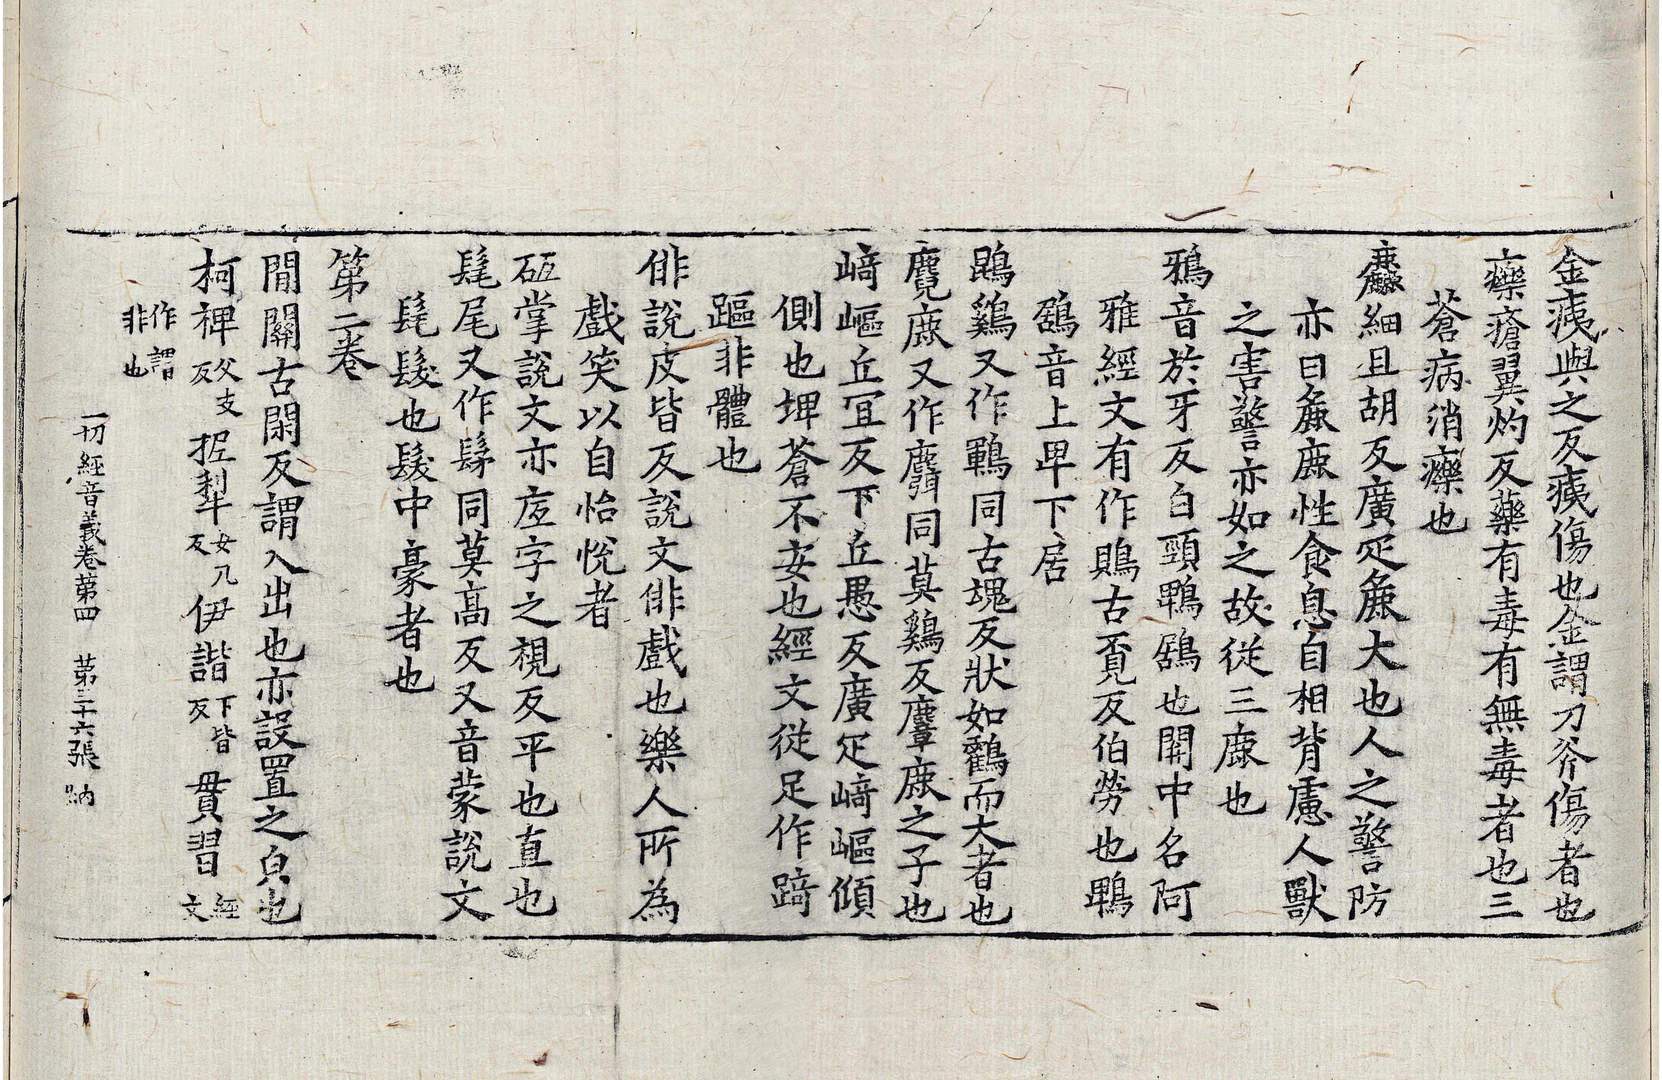 金㾤與之反㾤傷也金謂刀斧傷者也
癳瘡翼灼反藥有毒有無毒者也三
蒼病消癳也
麤細且胡反廣疋麁大也人之警防
亦曰麁鹿性食息自相背慮人獸
之害警亦如之故從三鹿也
鴉音於牙反白頸鵯鶋也關中名阿
雅經文有作鵙古覔反伯勞也鵯
鶋音上卑下居
鵾鷄又作鶤同古塊反狀如鸛而大者也
麑鹿又作麛同莫鷄反麞鹿之子也
崎嶇丘冝反下丘愚反廣疋崎嶇傾
側也埤蒼不安也經文從足作踦
䟽非體也
俳說皮皆反說文俳戲也樂人所為
戲笑以自怡悅者
砥掌說文亦底字之視反平也直也
髦尾又作髳同莫高反又音蒙說文
髦髮也髮中豪者也
第二卷
閒關古閑反謂入出也亦設置之皃也
柯裨父支反抳犁女几反伊諧下皆反貫習經文
作謂非也
一切經音義卷第四 第三十六張 納